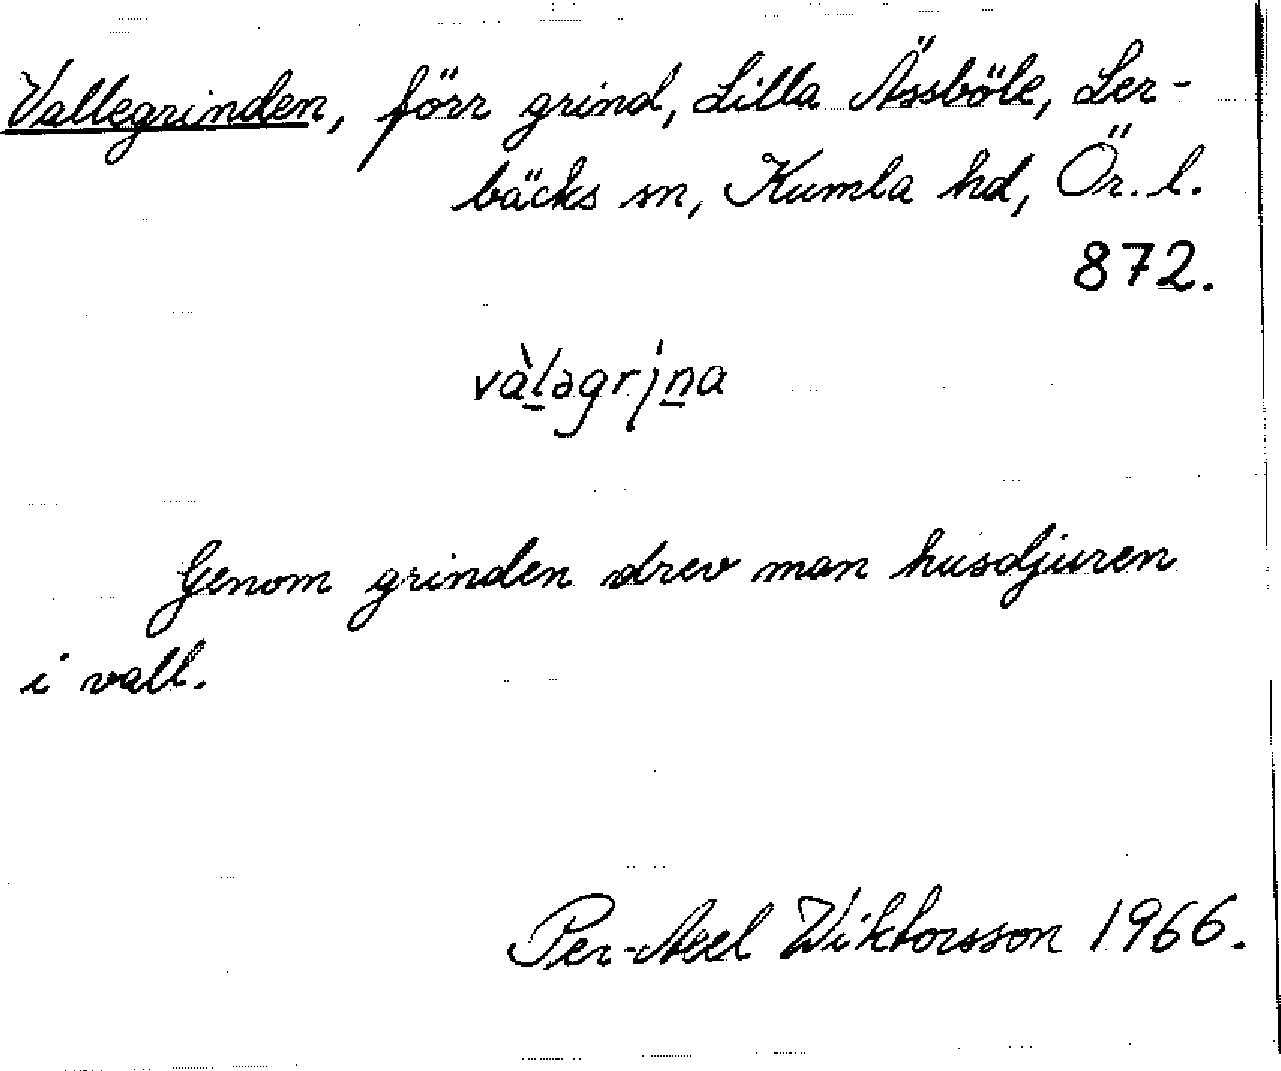 Vallegrinden, förr grind, Lilla Ässböle, Ler-
bäcks sn, Kumla hd, Ör. l.
872.
và̱lagri̱na
Genom grinden drev man husdjuren
i vall.
Per-Axel Wiktorsson 1966.